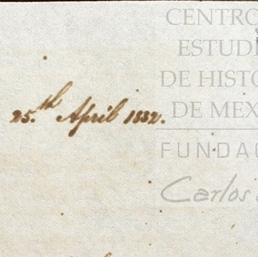 CENTRO
ESTUDI
DE HISTO
DE MEX
FUNDAC
Carlos
25.th April 1832.